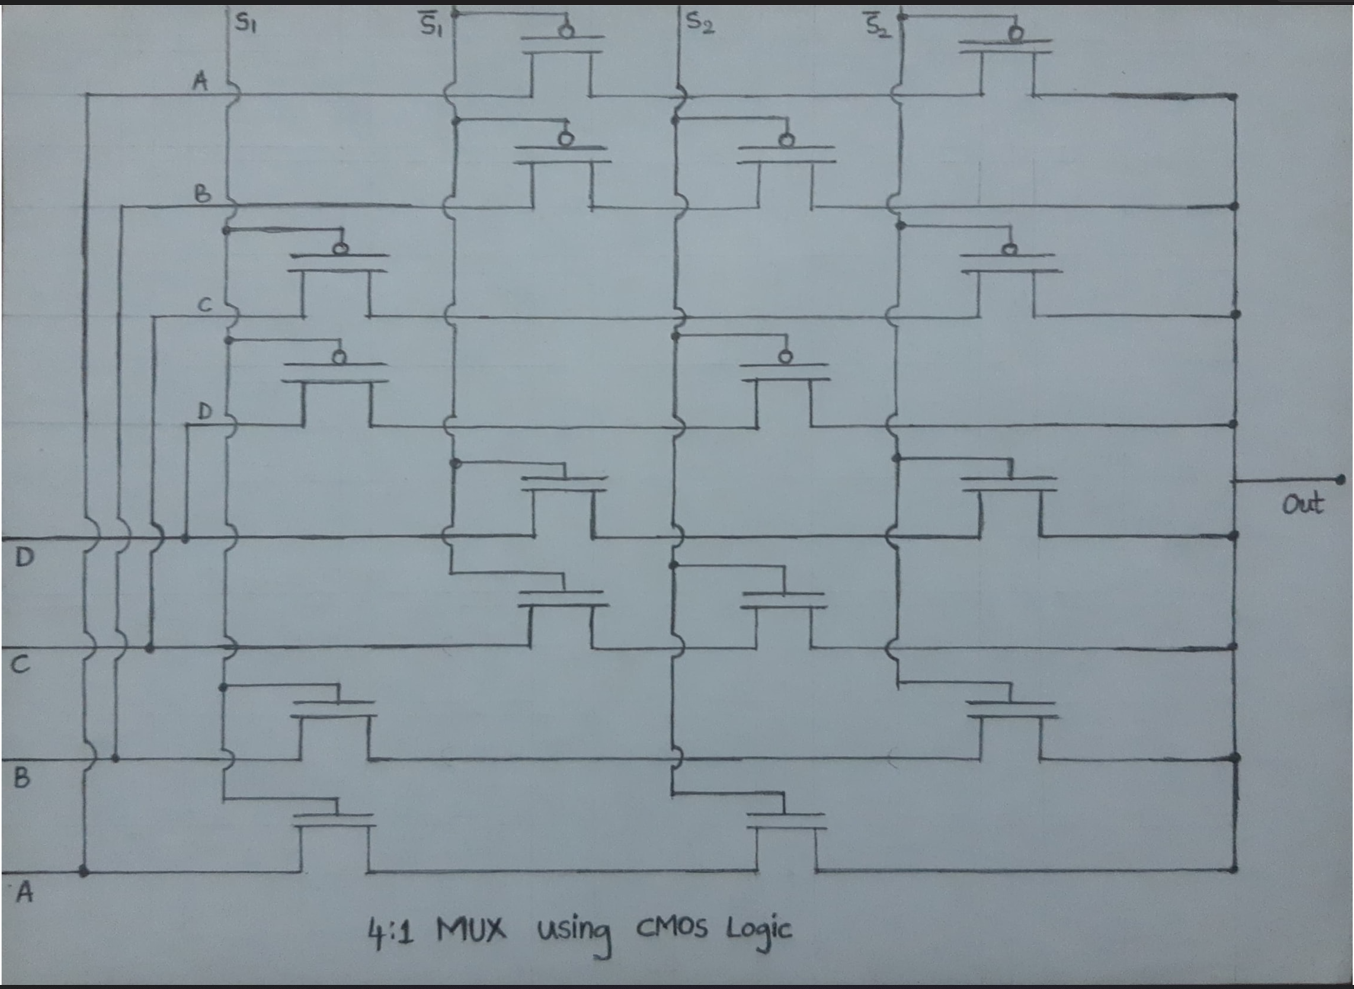 S1 S̅1 S2 S̅2
A
B
C
D
Out
D
C
B
A
4:1 MUX using CMOS Logic